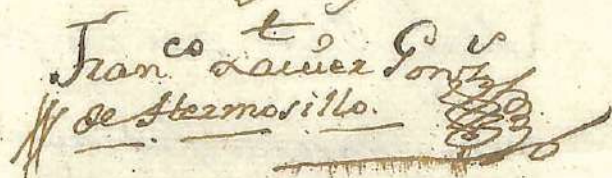 Fran.co Xavier Gonz.s
de Hermosillo.